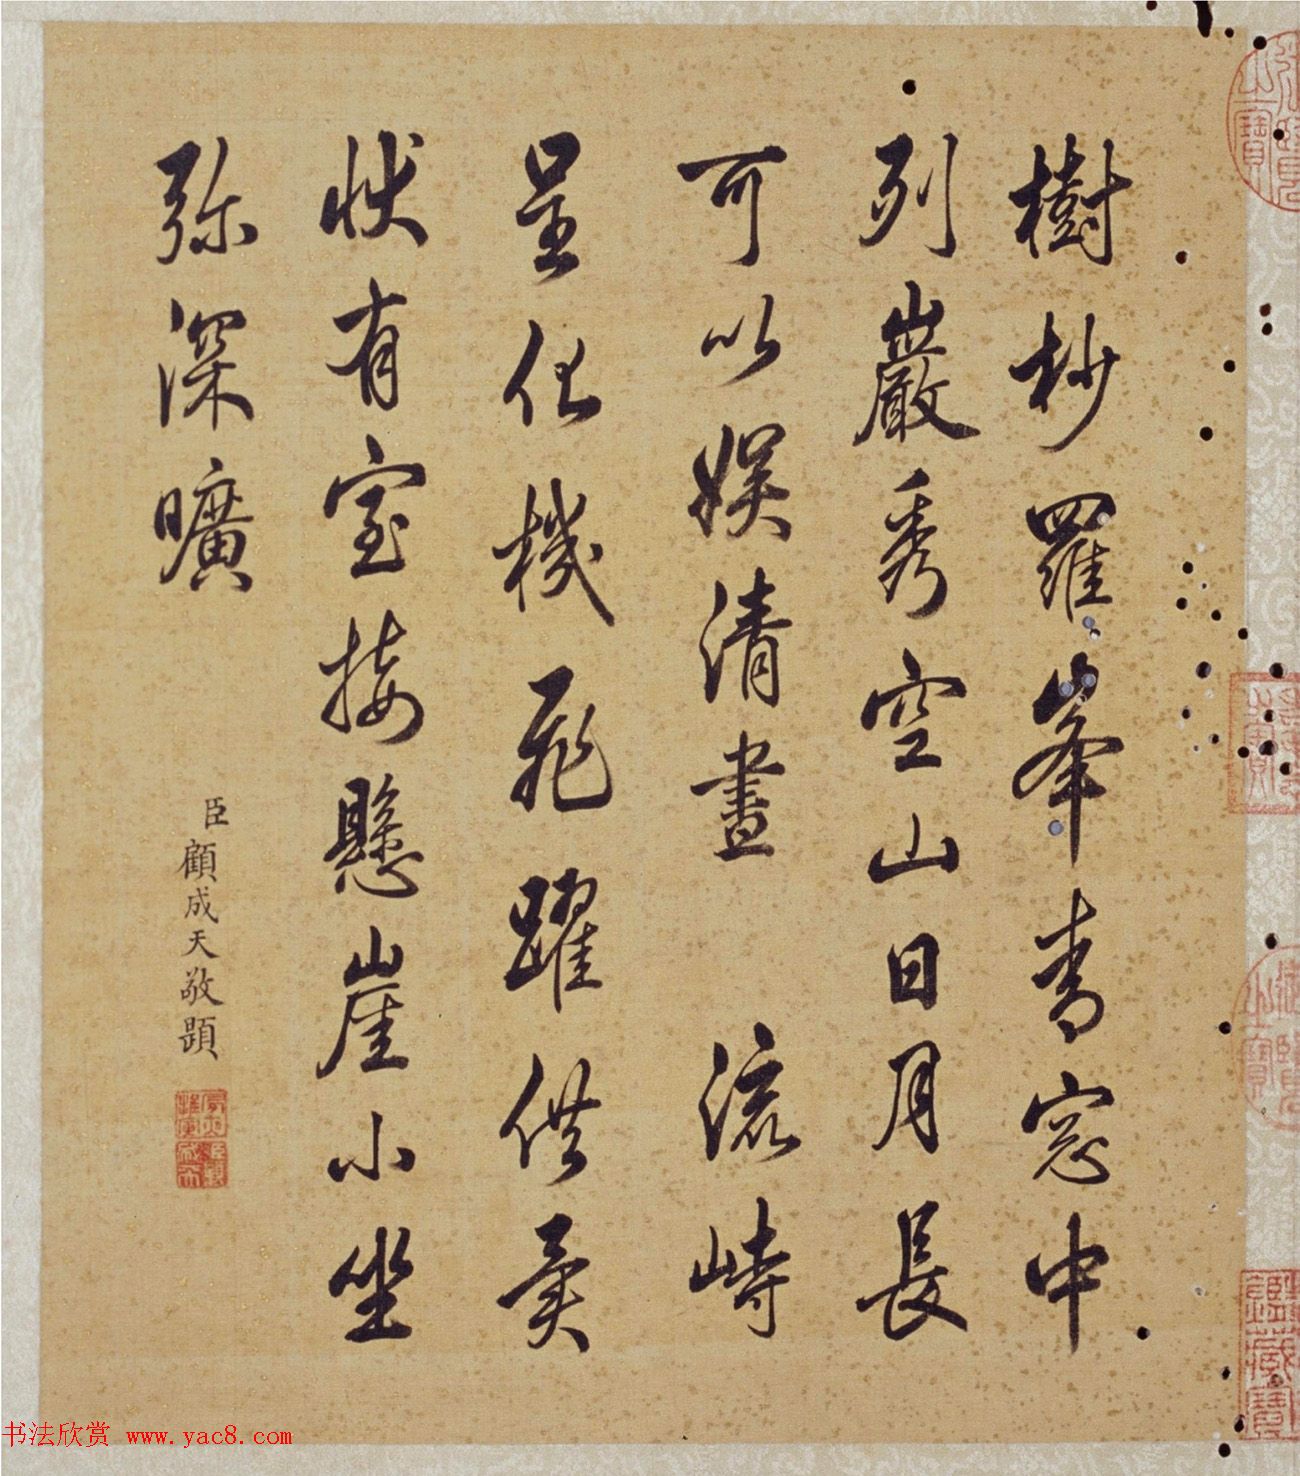 樹杪羅峯青窓中
列巖秀空山日月長
可以娛清晝 流峙
呈化機飛躍供奚
狀有室接懸崖小坐
弥深曠
臣顧成天敬題
鑑藏寶
书法欣赏 www.yac8.com